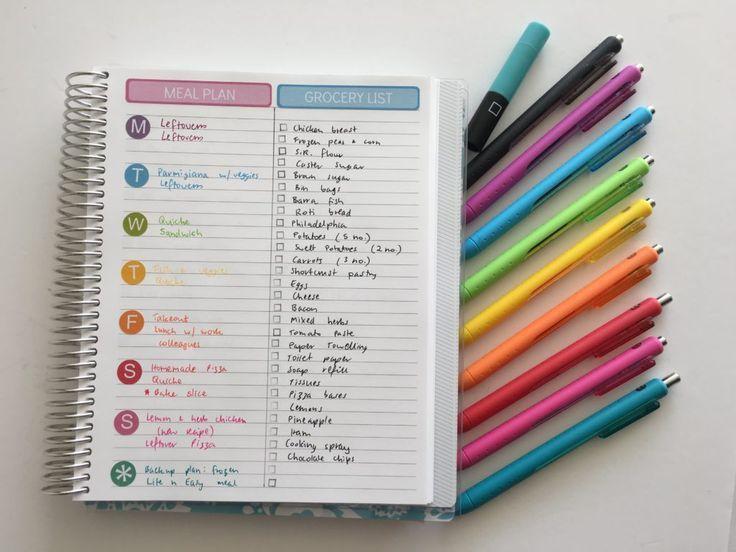 MEAL PLAN
M
Leftovers
Leftovers
T
Parmigiana w/ veggies
Leftovers
W
Quiche
Sandwich
T
Fish & veggies
Quiche
F
Takeout
Lunch w/ work
colleagues
S
Homemade Pizza
Quiche
* Bake slice
S
Lemon & herb chicken
(new recipe)
Leftover Pizza
*
Backup plan: frozen
Lite n Easy meal
GROCERY LIST
Chicken breast
Frozen peas & corn
S.R. flour
Caster sugar
Brown sugar
Bin bags
Barra fish
Roti bread
Philadelphia
Potatoes (5 no.)
Sweet Potatoes (2 no.)
Carrots (3 no.)
Shortcrust pastry
Eggs
Cheese
Bacon
Mixed herbs
Tomato Paste
Paper Towelling
Toilet paper
Soap refill
Tissues
Pizza bases
Lemons
Pineapple
Ham
Cooking spray
Chocolate chips